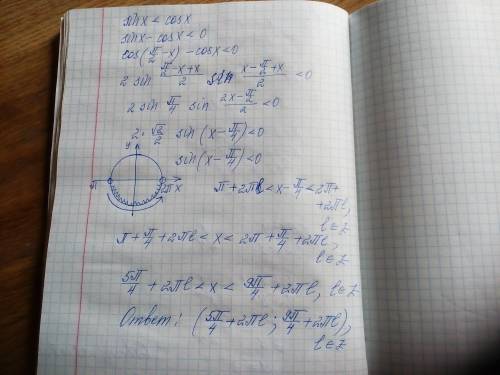 sinx < cosx
sinx - cosx < 0
cos(π/2 - x) - cosx < 0
2 sin (π/2 - x + x)/2 sin (x - π/2 + x)/2 < 0
2 sin π/4 sin (2x - π/2)/2 < 0
2 · √2/2 sin (x - π/4) < 0
y
sin (x - π/4) < 0
π 2π x
π + 2πl < x - π/4 < 2π +
+ 2πl,
l ∈ Z
π + π/4 + 2πl < x < 2π + π/4 + 2πl,
l ∈ Z
5π/4 + 2πl < x < 9π/4 + 2πl, l ∈ Z
Ответ: (5π/4 + 2πl ; 9π/4 + 2πl),
l ∈ Z